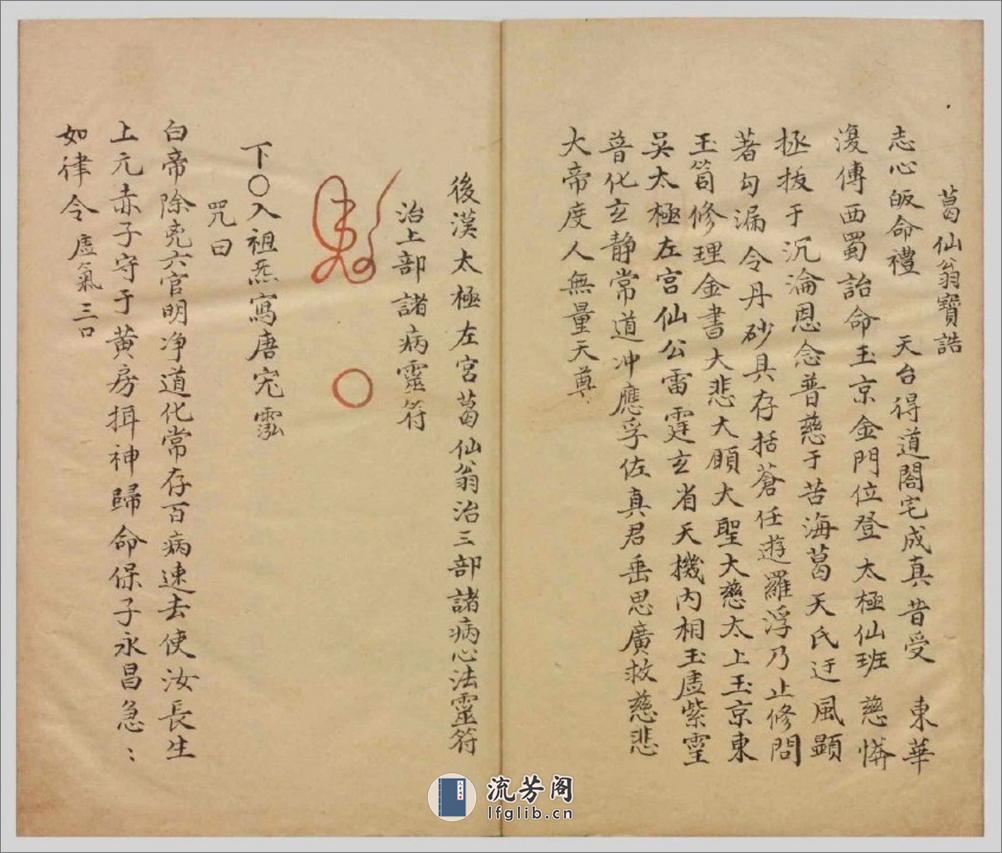 葛仙翁寶誥
志心皈命禮 天台得道閤宅成真昔受 東華
復傳西蜀詒命玉京金門位登太極仙班慈憐
拯拔于沉淪恩念普慈于苦海葛天氏迓風顕
著勾漏令丹砂具存括蒼任遊羅浮乃止修問
玉笥修理金書大悲大願大聖大慈太上玉京東
吳太極左宮仙公雷霆玄省天機內相玉虛紫霊
普化玄静常道冲應孚佐真君垂思廣救慈悲
大帝度人無量天尊
後漢太極左宮葛仙翁治三部諸病心法靈符
治上部諸病靈符
下〇入祖炁寫唐宄
咒曰
白帝除兇六官明净道化常存百病速去使汝長生
上元赤子守于黄房揖神歸命保子永昌急〻
如律令 虛氣三口
流芳阁
lfglib.cn